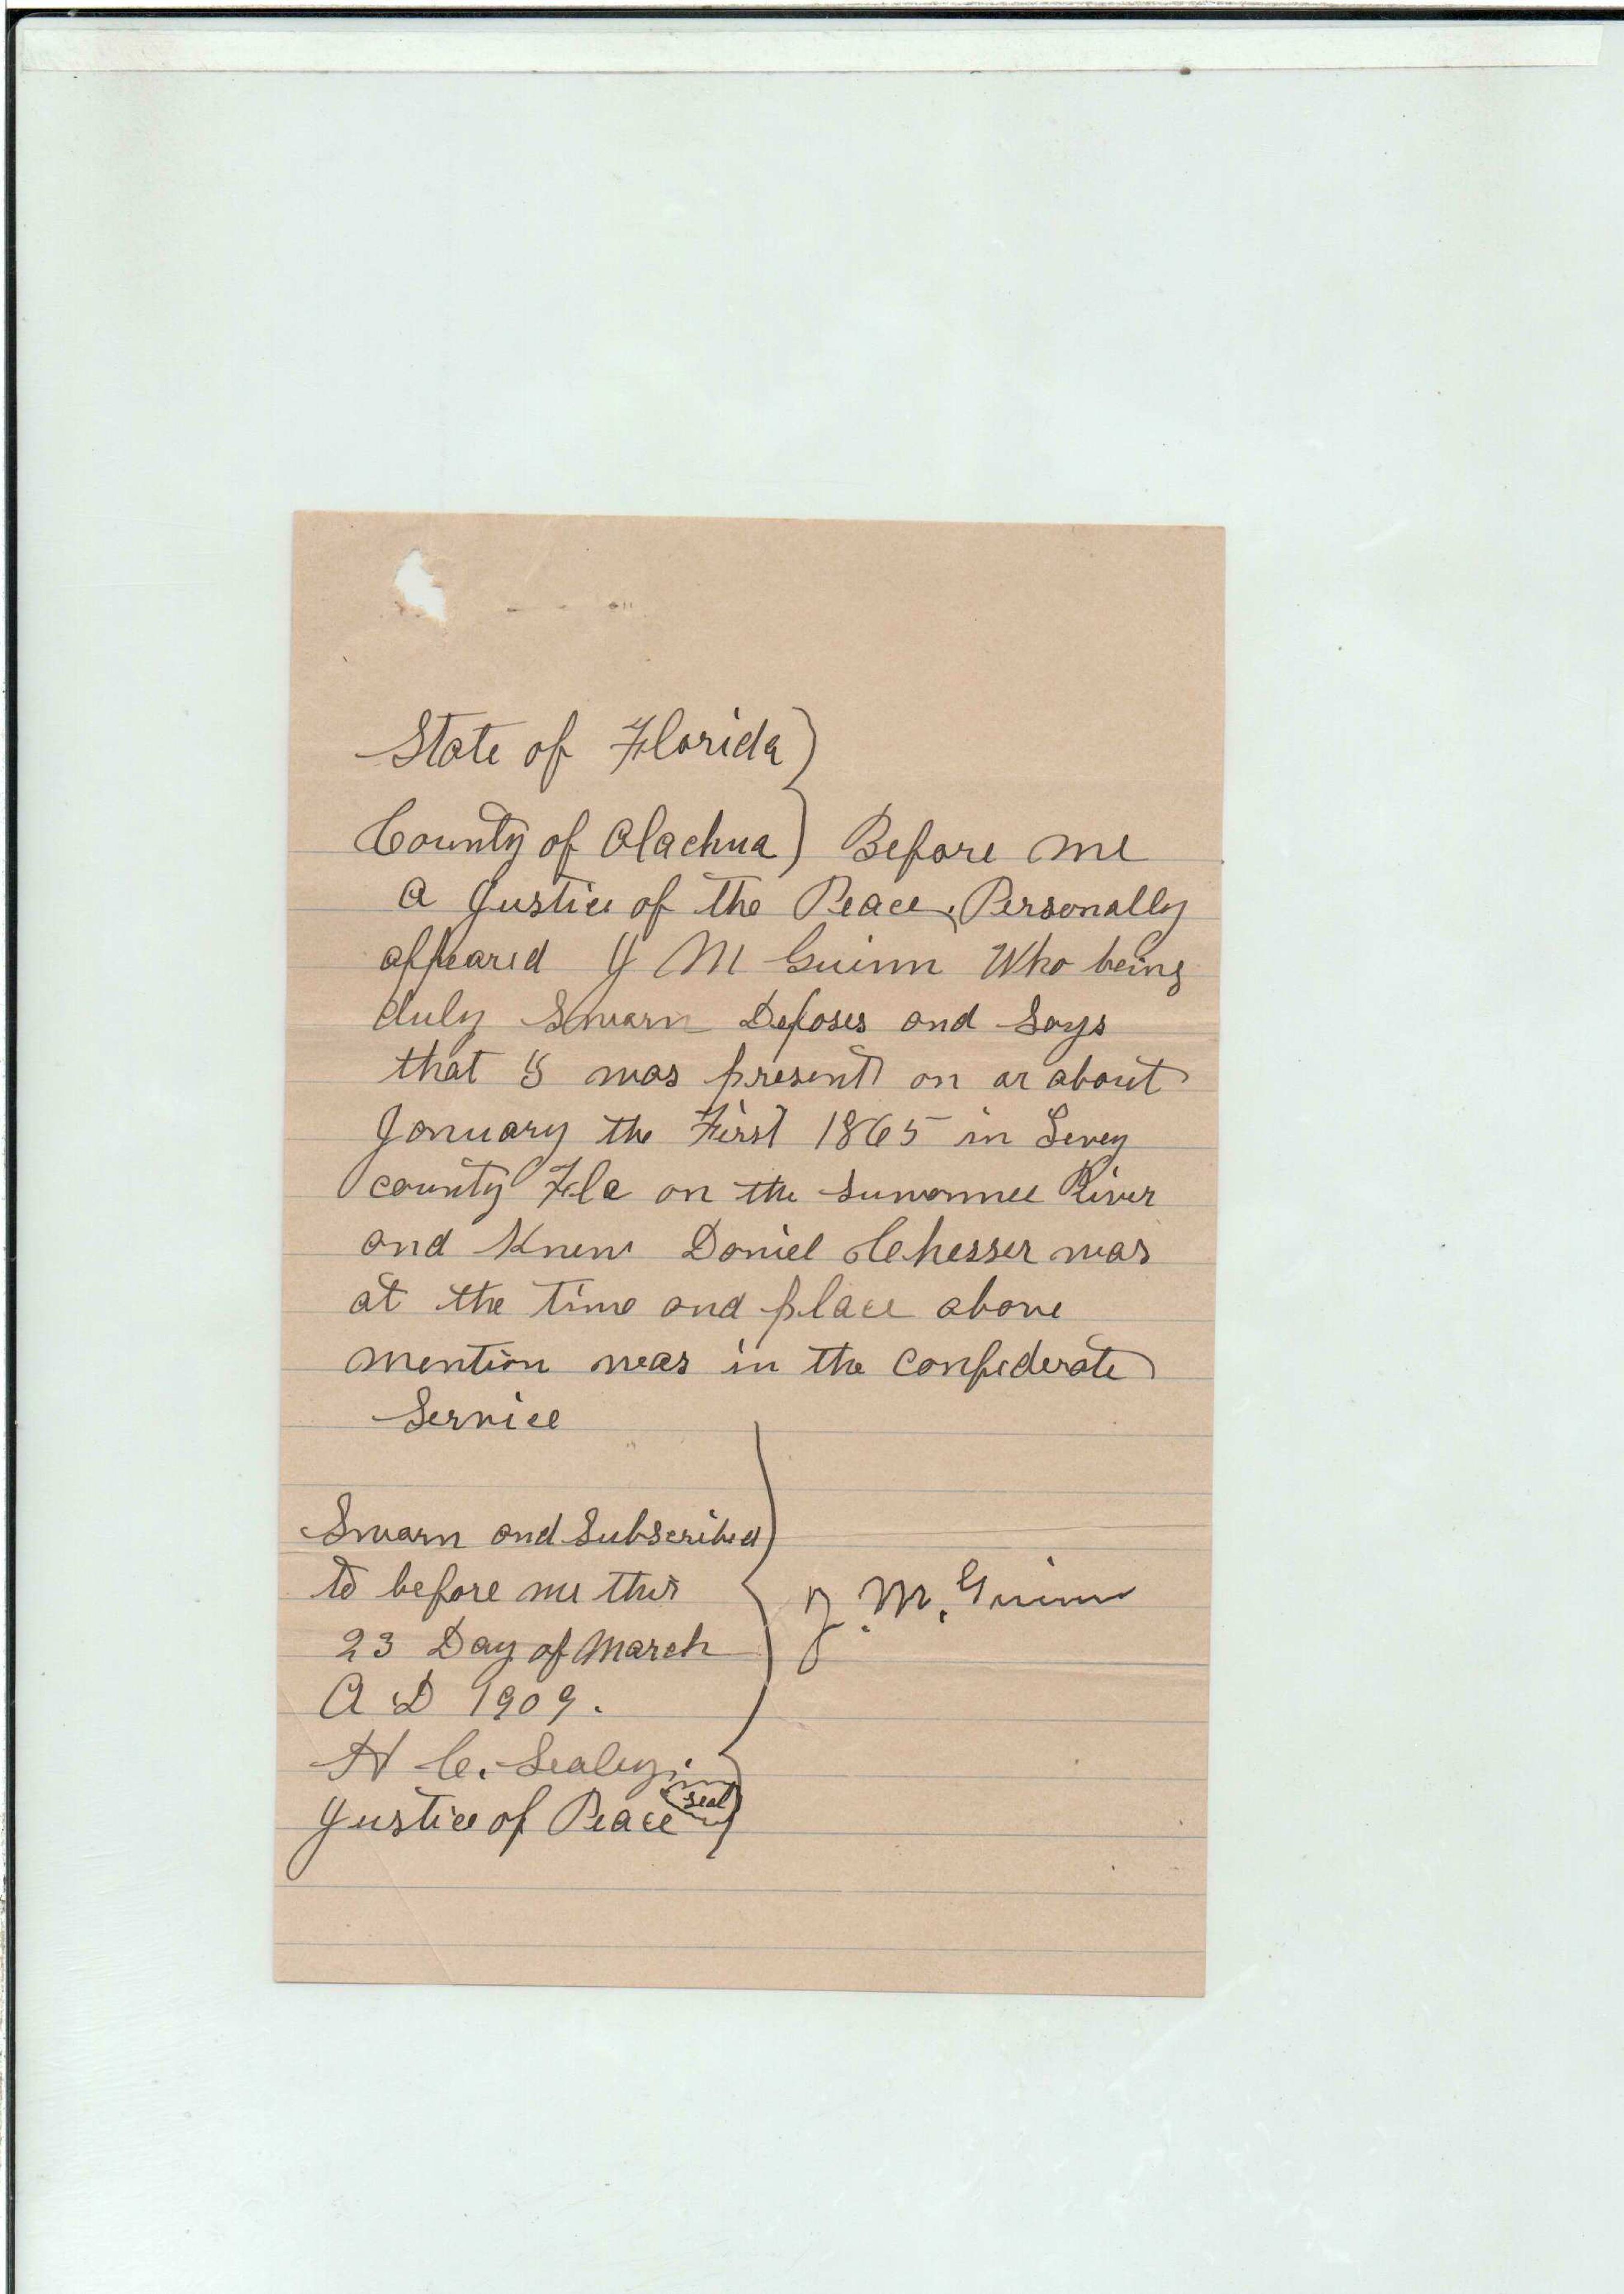 State of Florida
County of Alachua Before me
a Justice of the Peace, Personally
appeared J M Guinn Who being
duly Sworn Deposes and Says
that I was present on or about
January the First 1865 in Levey
county Fla on the Suwannee River
and Knew Daniel Chesser was
at the time and place above
mention was in the Confederate
Service
Sworn and Subscribed
to before me this
23 Day of March
A D 1909.
J. M. Guinn
H C. Sealey.
Justice of Peace seal